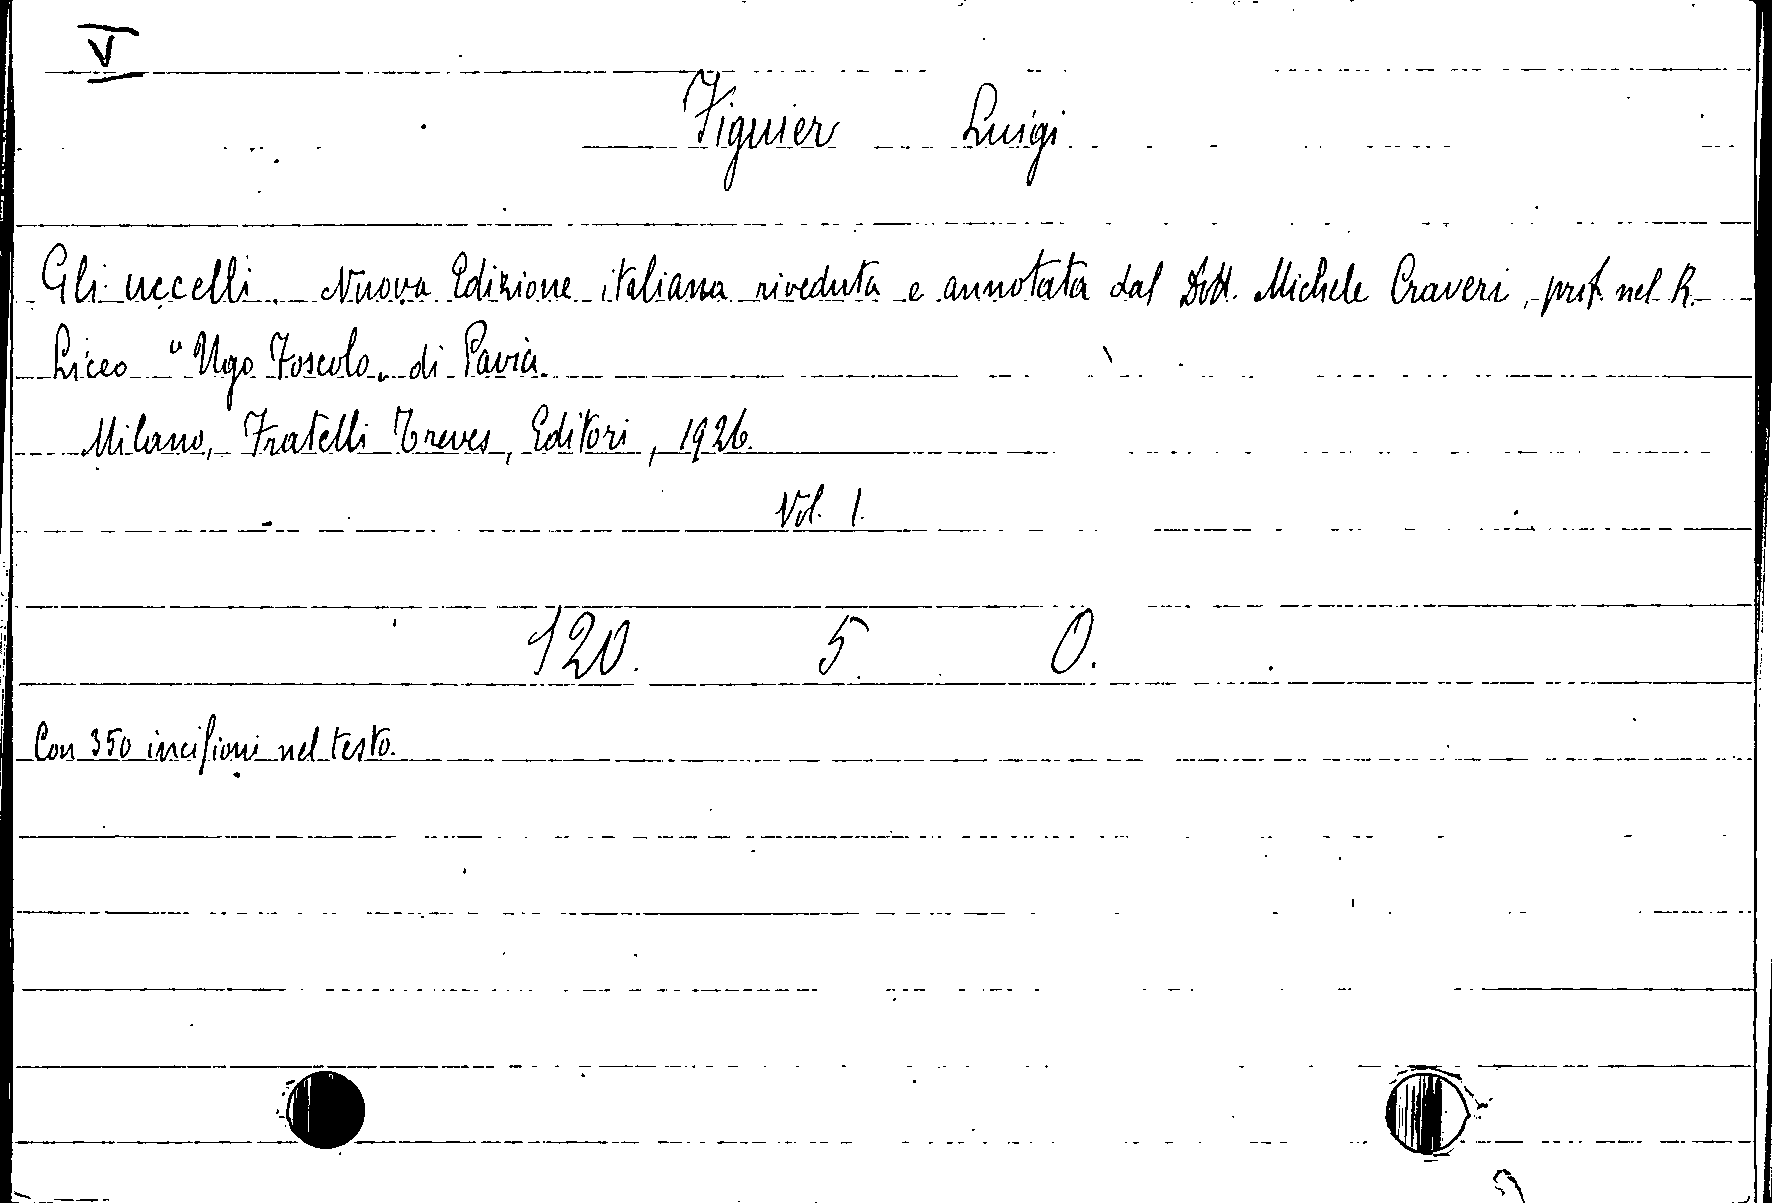 V
Figuier Luigi
Gli uccelli. Nuova Edizione italiana riveduta e annotata dal Dott. Michele Craveri, prof. nel R.
Liceo "Ugo Foscolo„ di Pavia.
Milano, Fratelli Treves, Editori, 1926.
Vol. 1.
120. 5. 0.
Con 350 incisioni nel testo.